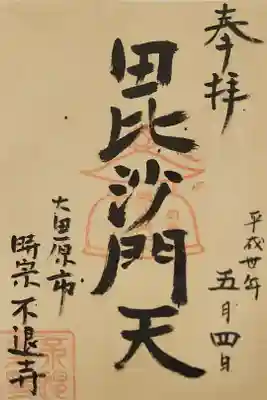 奉拝
平成卅年
五月四日
毘沙門天
大田原市
時宗不退寺